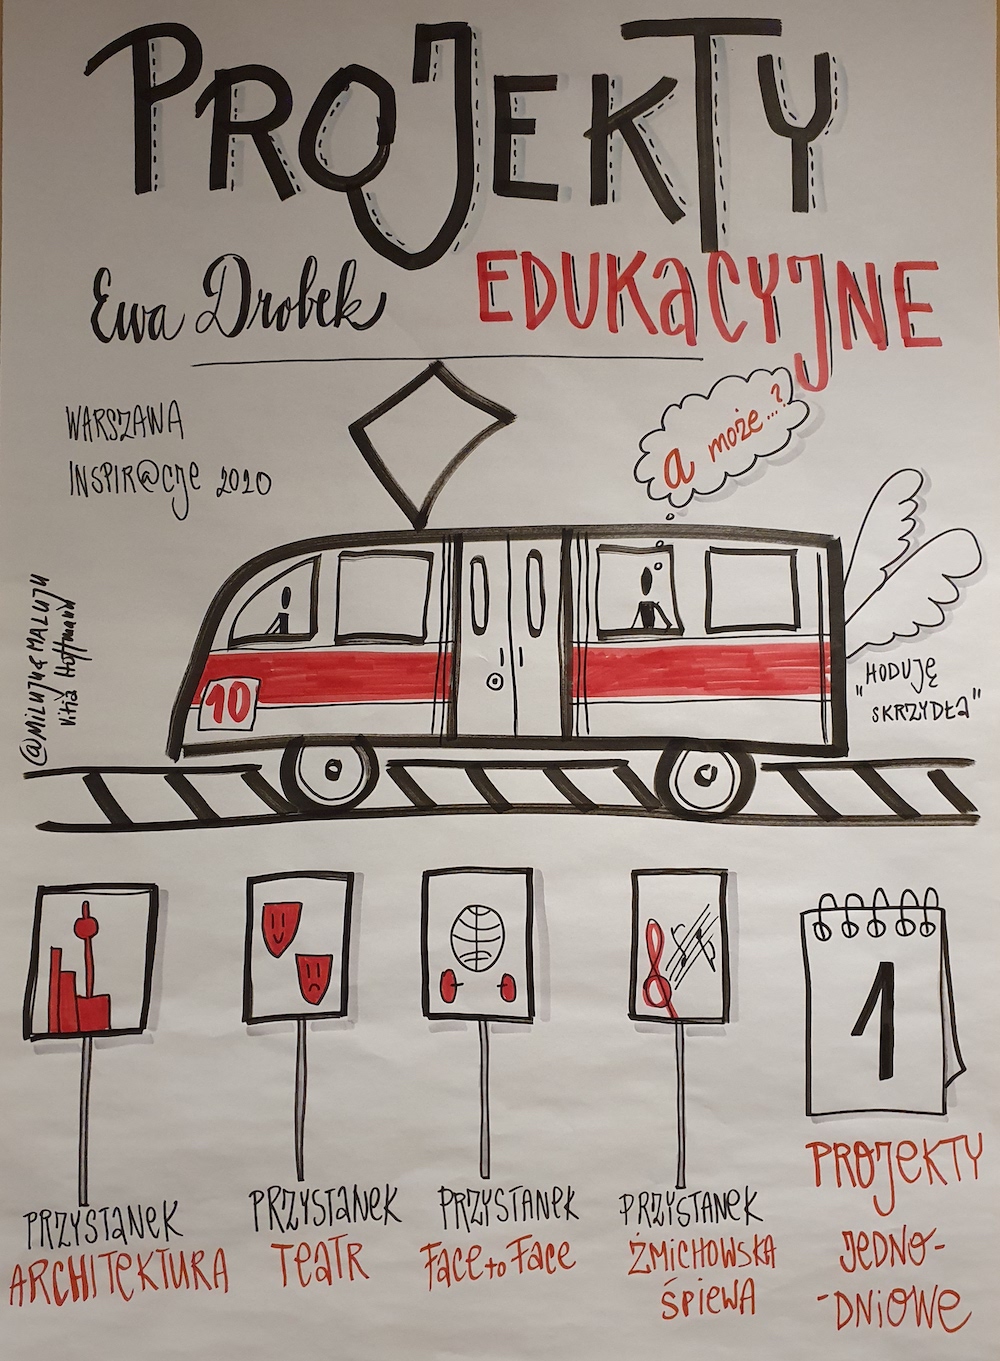 PROJEKTY
EDUKACYJNE
Ewa Drobek
WARSZAWA
INSPIR@CJE 2020
a może...?
10
"HODUJĘ
SKRZYDŁA"
@MiLUJU&MALUJU
Vitia Hoffmann
1
PRZYSTANEK
ARCHITEKTURA
PRZYSTANEK
TEATR
PRZYSTANEK
Face to Face
PRZYSTANEK
ŻMICHOWSKA
ŚPIEWA
PROJEKTY
JEDNO-
-DNIOWE